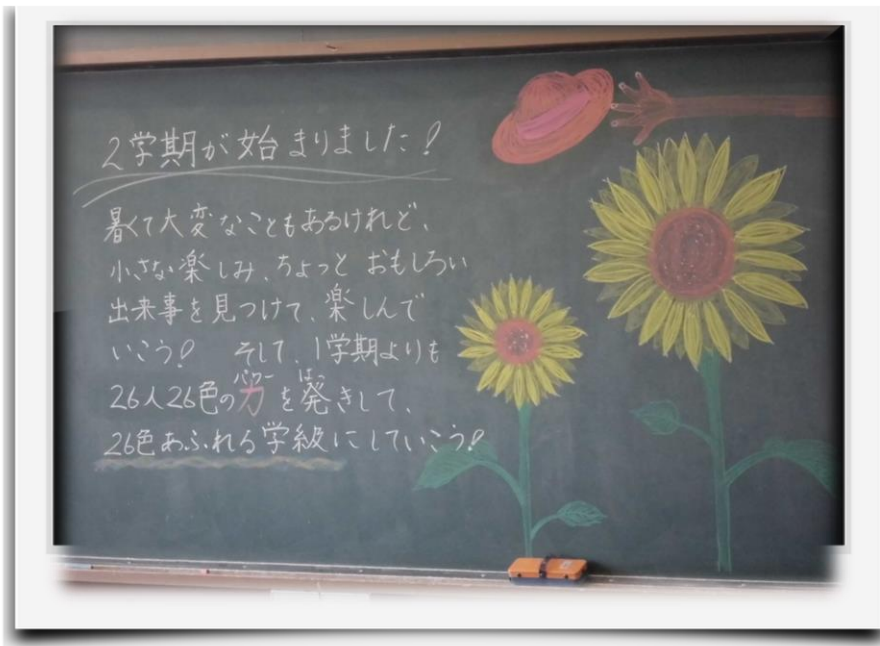 2学期が始まりました!
暑くて大変なこともあるけれど、
小さな楽しみ、ちょっと おもしろい
出来事を見つけて、楽しんで
いこう! そして、1学期よりも
パワー はっ
26人26色の力を発きして、
26色あふれる学級にしていこう!